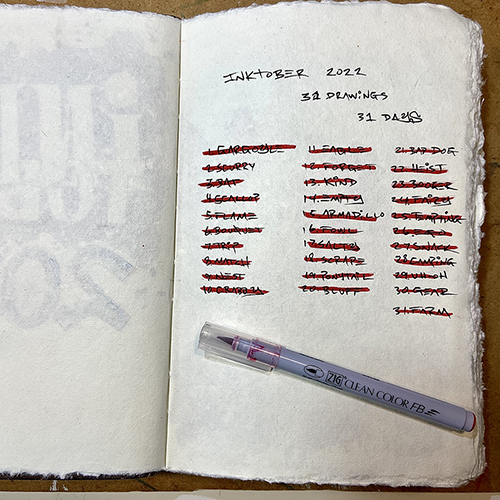 INKTOBER 2022
31 DRAWINGS
31 DAYS
1. GARGOYLE
2. SCURRY
3. BAT
4. SCALLOP
5. FLAME
6. BOUQUET
7. TRIP
8. MATCH
9. NEST
10. CRABBY
11. EAGLE
12. FORGET
13. KIND
14. EMPTY
15. ARMADILLO
16. FOWL
17. SALTY
18. SCRAPE
19. PONYTAIL
20. BLUFF
21. BAD DOG
22. HEIST
23. BOOGER
24. FAIRY
25. TEMPTING
26.
27. SNACK
28. CAMPING
29. UH-OH
30. GEAR
31. FARM
ZIG CLEAN COLOR FB